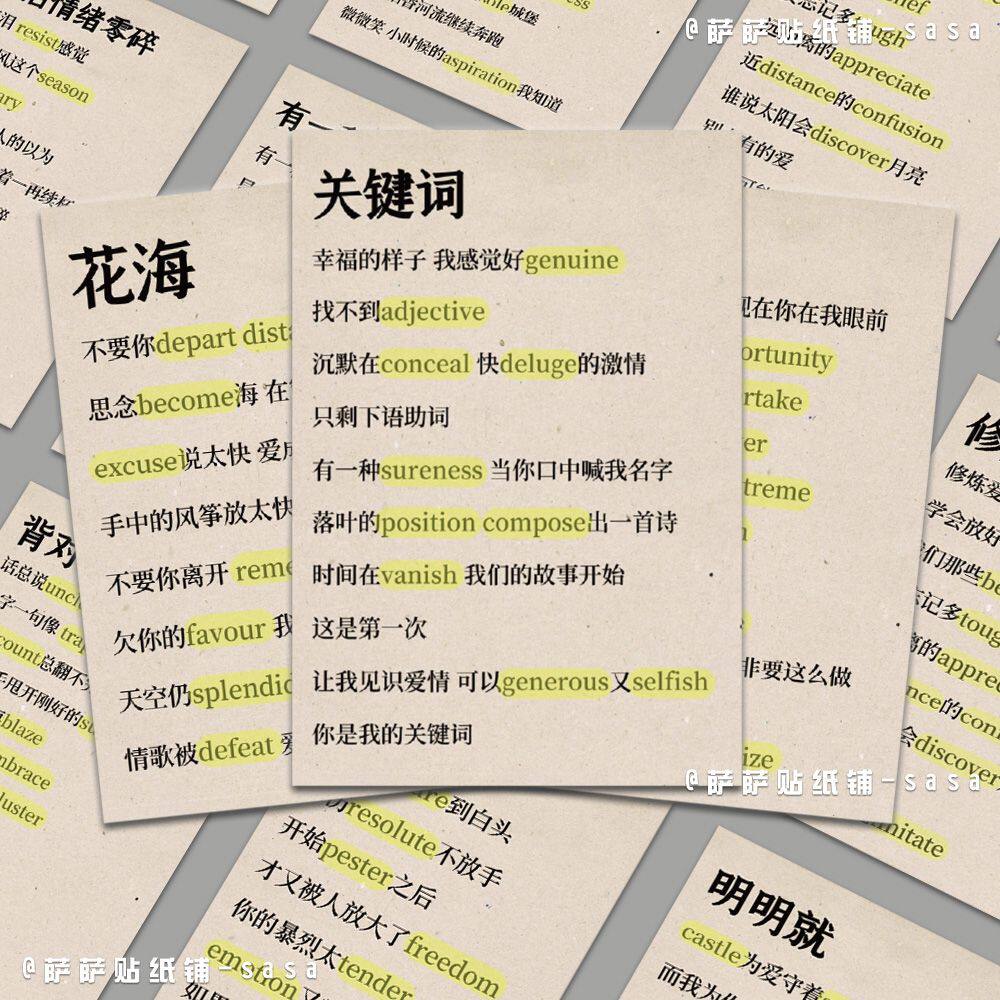 关键词
幸福的样子 我感觉好genuine
找不到adjective
沉默在conceal 快deluge的激情
只剩下语助词
有一种sureness 当你口中喊我名字
落叶的position compose出一首诗
时间在vanish 我们的故事开始
这是第一次
让我见识爱情 可以generous又selfish
你是我的关键词
花海
不要你depart
思念become海 在
excuse说太快 爱
手中的风筝放太快
不要你离开
欠你的favour 我
天空仍splendid
情歌被defeat
现在你在我眼前
非要这么做
情绪零碎
resist感觉
风这个season
人的以为
着一再续杯
有一
有一
城堡
香河流继续奔跑
微微笑 小时候的aspiration我知道
忘记多
离的appreciate
近distance的confusion
谁说太阳会discover月亮
有的爱
背对
话总说
字一句像
count总翻不
手甩开刚好的
blaze
embrace
cluster
到白头
resolute不放手
开始pester之后
才又被人放大了freedom
你的暴烈太tender
emotion又
如果
修
修炼爱
学会放好
们那些
忘记多
离的
的
会discover
imitate
明明就
castle为爱守着
而我为
@萨萨贴纸铺-sasa
@萨萨贴纸铺-sasa
@萨萨贴纸铺-sasa